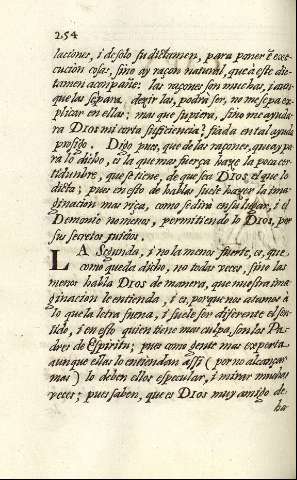 254
laciones, i de solo su dictamen, para poner ē exe-
cucion cosas, sino ay raçon natural, que à este dic-
tamen acompañe: las razones son muchas, i aun-
que las sè para dezir las, podrà ser, no me sepa ex-
plicar en ellas; mas que supiera, sino me ayuda-
ra DIOS mi corta suficiencia? fiada en tal ayuda
prosigo. Digo pues, que de las razones, que ay pa-
ra lo dicho, es la que mas fuerça haze la poca cer-
tidumbre, que se tiene, de que sea DIOS, el que lo
dicta; pues en esto de hablas suele hazer la ima-
ginacion mas rica, como se dirà en su lugar, i el
Demonio no menos, permitiendo lo DIOS, por
sus secretos juizios.
LA Segunda, i no la menos fuerte, es, que
como queda dicho, no todas vezes, sino las
menos habla DIOS de manera, que nuestra ima-
ginacion le entienda, i es, porque nos atamos à
lo que la letra suena, i suele ser diferente el sen-
tido, i en esto quien tiene mas culpa, son los Pa-
dres de Espiritu; pues como gente mas experta,
aunque ellas lo entiendan assi (por no alcançar
mas) lo deben ellos especular, i mirar muchas
veces; pues saben, que es DIOS muy amigo de-
ha